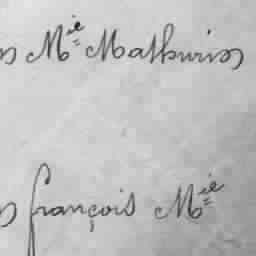 Mie Mathurin
françois Mie